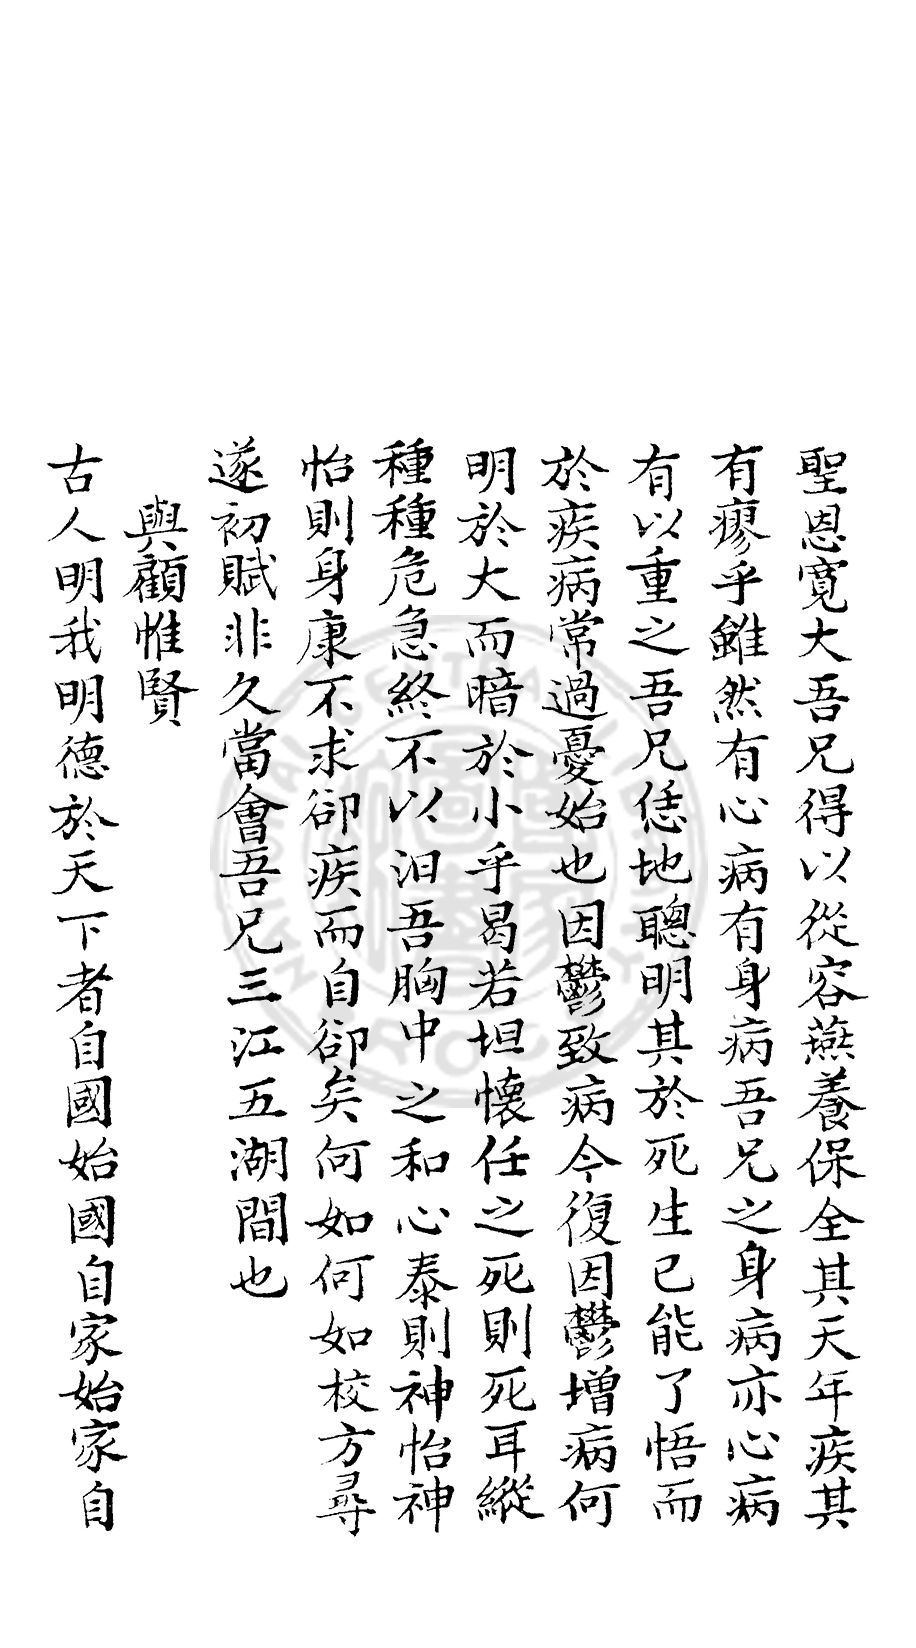 聖恩寛大吾兄得以從容燕養保全其天年疾其
有瘳乎雖然有心病有身病吾兄之身病亦心病
有以重之吾兄恁地聰明其於死生已能了悟而
於疾病常過憂始也因鬱致病今復因鬱增病何
明於大而暗於小乎曷若坦懐任之死則死耳縱
種種危急終不以汨吾胸中之和心泰則神怡神
怡則身康不求卻疾而自卻矣何如何如校方尋
遂初賦非久當會吾兄三江五湖間也
與顧惟賢
古人明我明德於天下者自國始國自家始家自